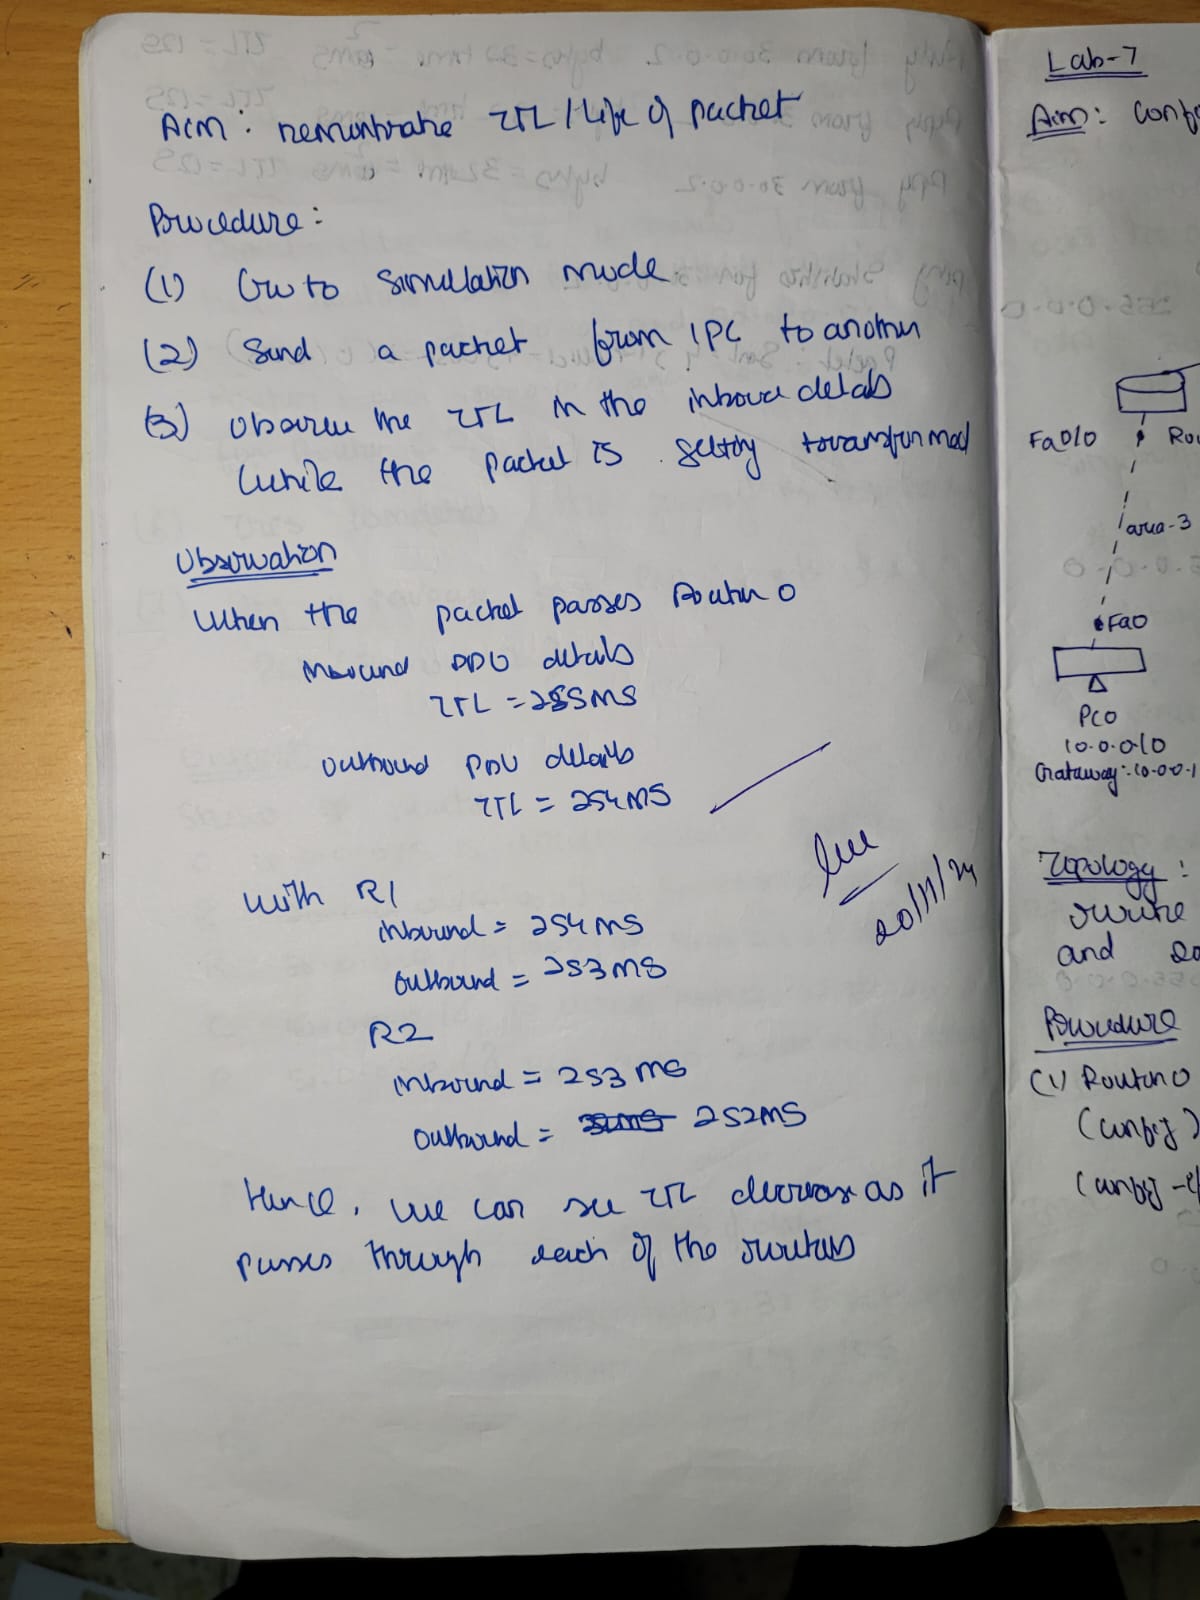 Aim: Demonstrate TTL / Life of packet
Procedure:
(1) Go to Simulation mode
(2) Send a packet from 1PC to another
(3) Observe the TTL in the inbound details
while the packet is getting transformed
Observation
When the packet passes Router 0
Inbound PDU details
TTL = 255ms
Outbound PDU details
TTL = 254ms
With R1
inbound = 254ms
Outbound = 253ms
R2
inbound = 253ms
Outbound = 252ms
20/11/24
Hence, we can see TTL decrease as it
passes through each of the routers
Lab-7
Aim: Conf
Fa0/0 Rou
area-3
Fa0
PC0
10.0.0.10
Gataway: 10.0.0.1
Topology :
route
and
Procedure
(1) Router 0
(config)
(config-